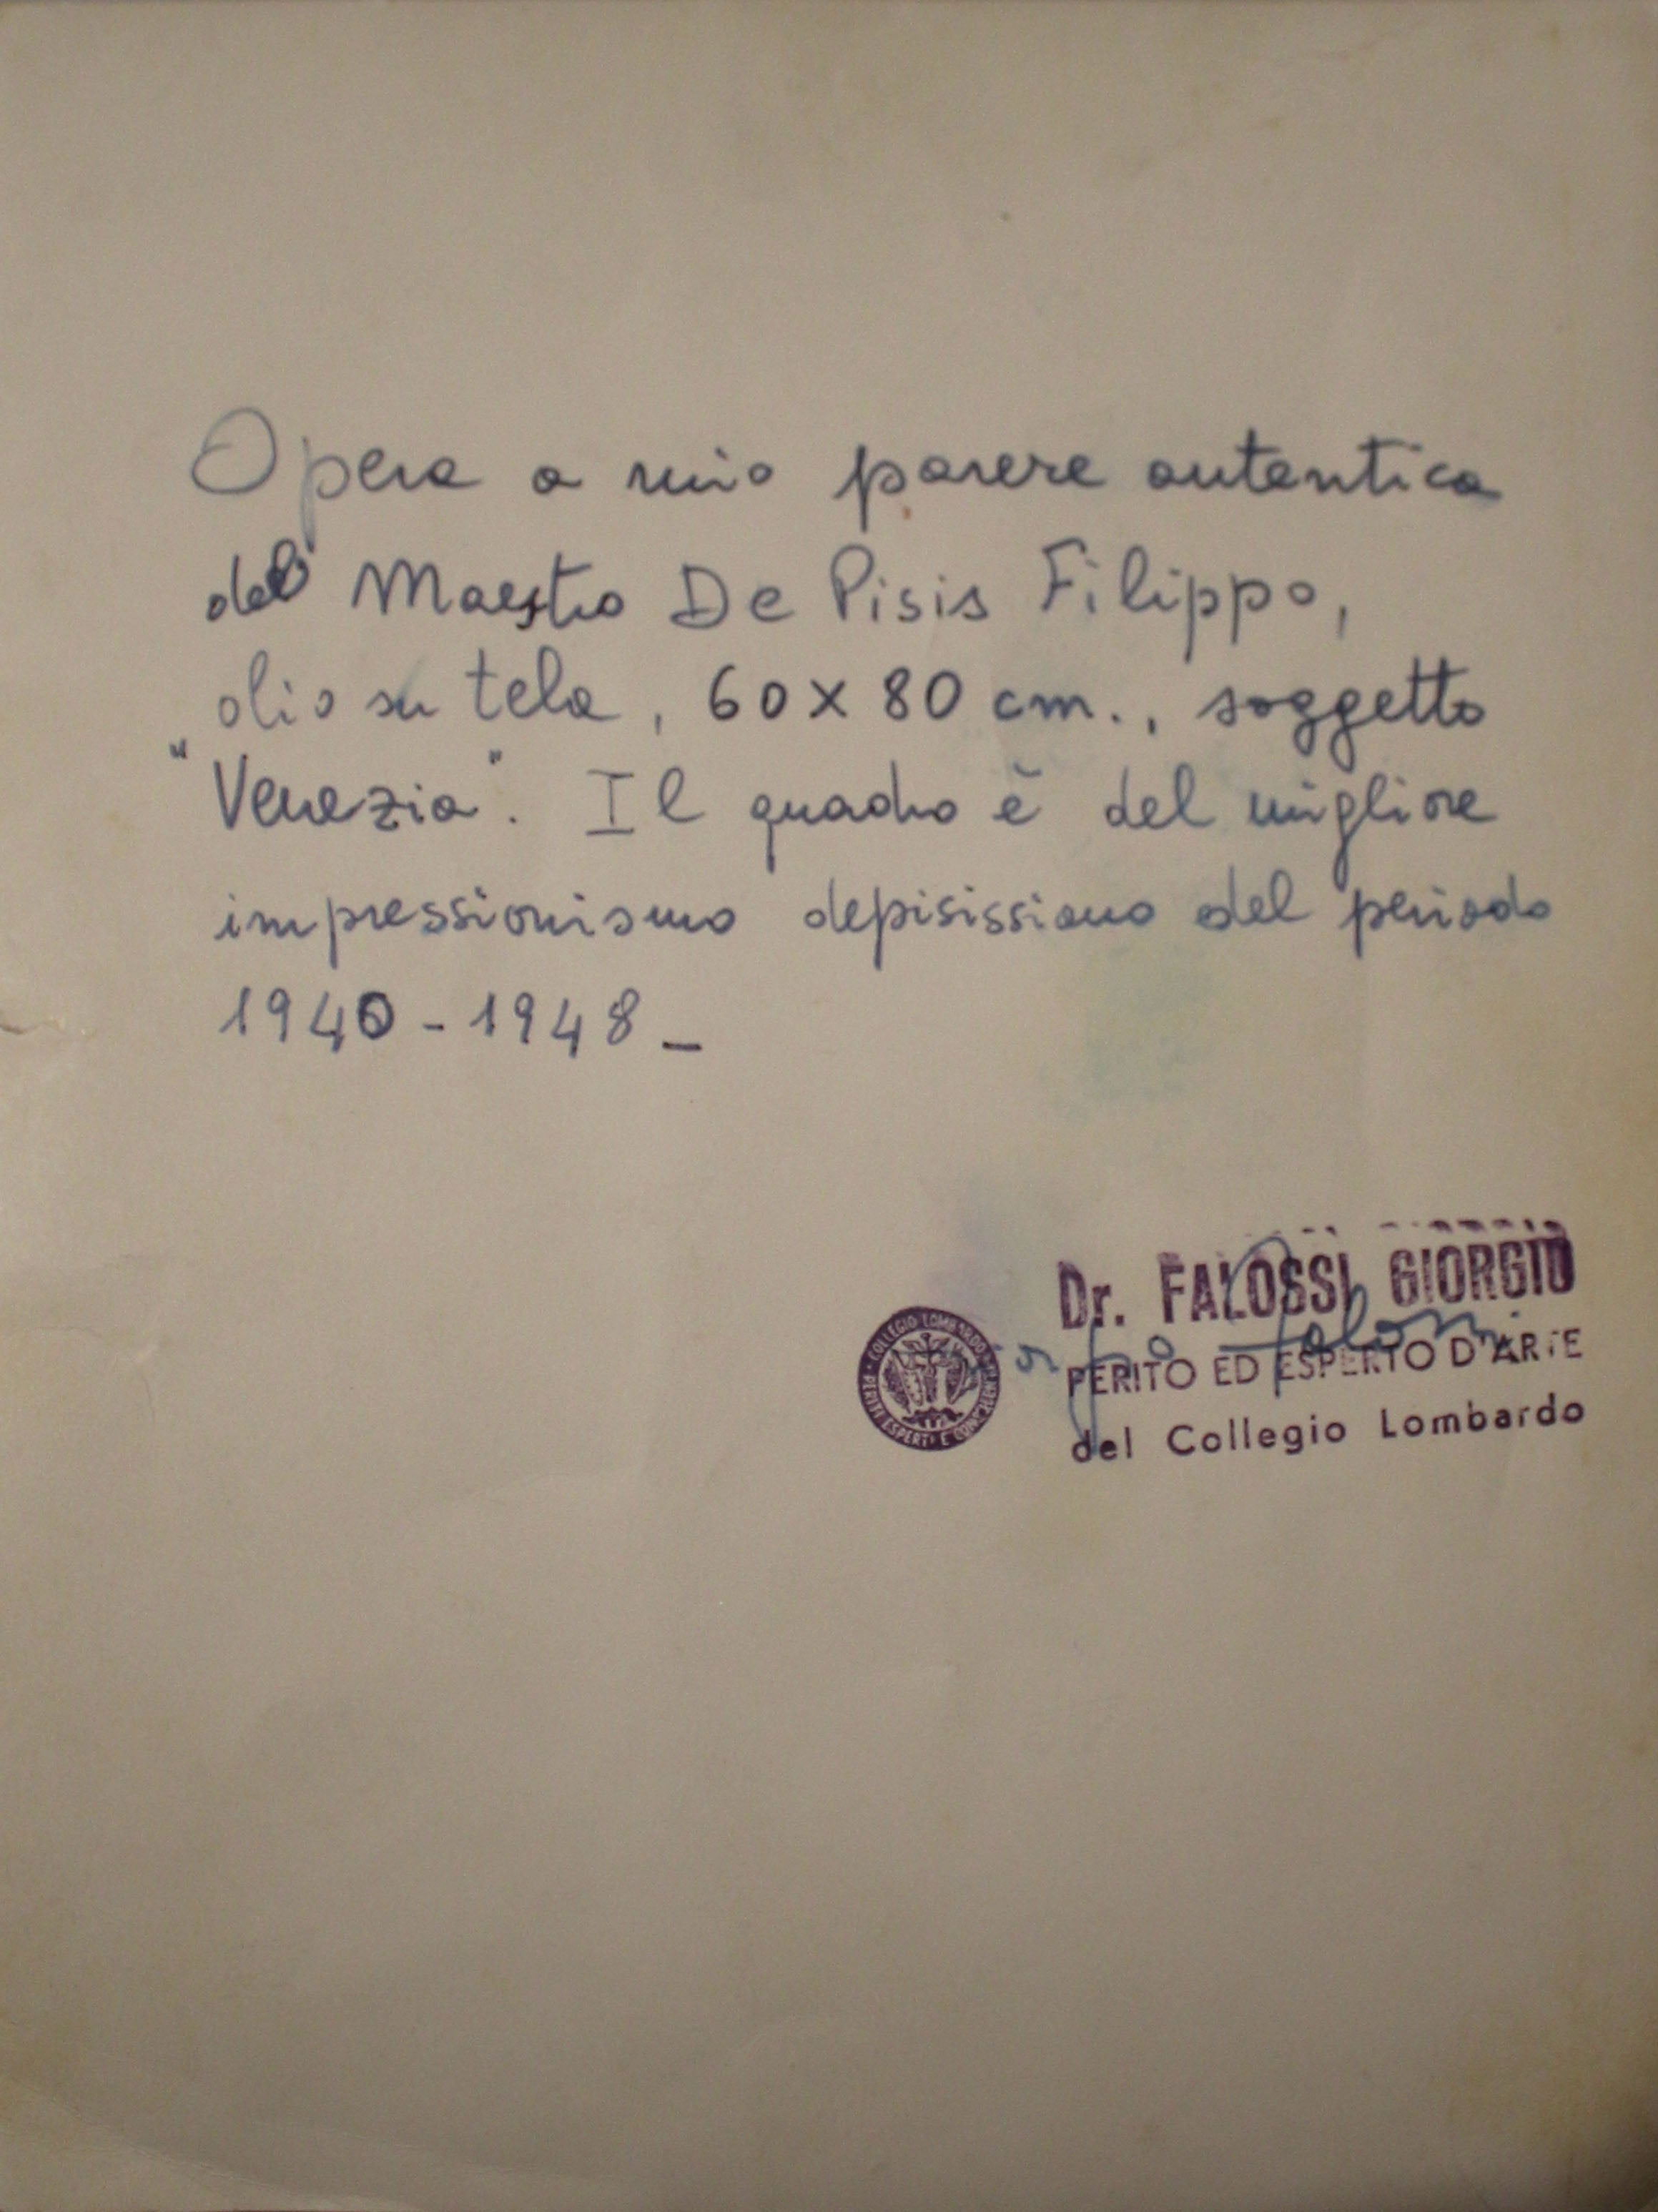 Opera a mio parere autentica
del Maestro De Pisis Filippo,
olio su tela, 60x80 cm., soggetto
"Venezia". Il quadro è del migliore
impressionismo depisissiano del periodo
1940-1948_
Dr. FALOSSI GIORGIO
PERITO ED ESPERTO D'ARTE
del Collegio Lombardo
COLLEGIO LOMBARDO PERITI ESPERTI E